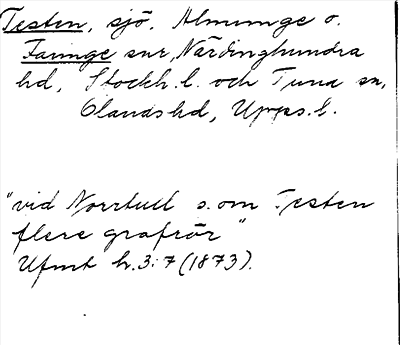 Testen, sjö, Almunge o.
Faringe snr, Närdinghundra
hd, Stockh. l. och Tuna sn,
Olands hd, Upps. l.
"vid Norrtull s. om Testen
flere grafrör"
Ufmt h. 3: 7 (1873).